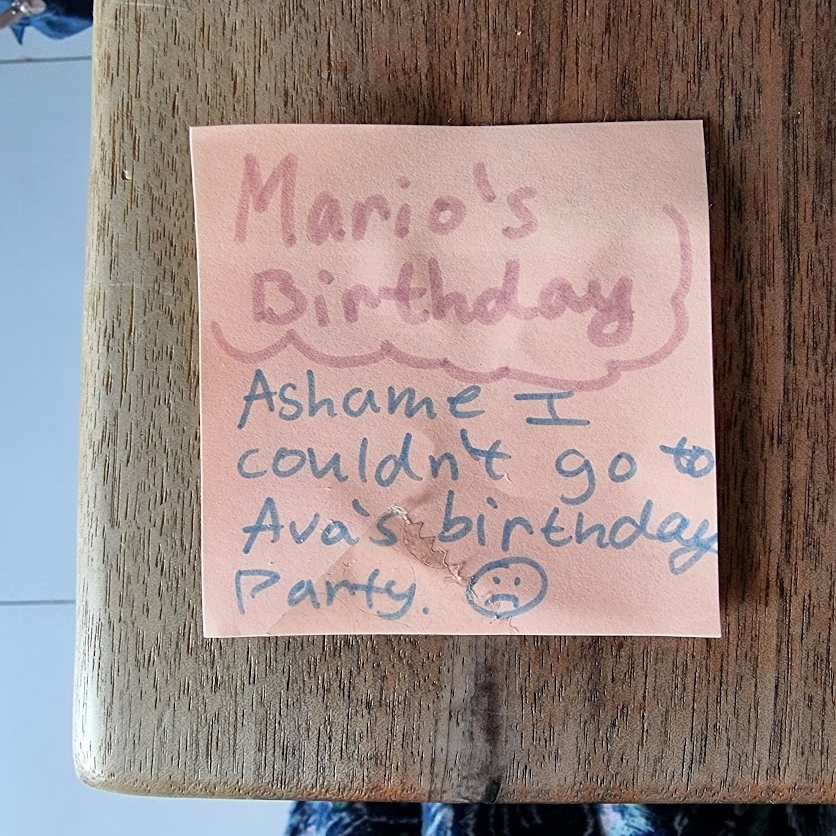 Mario's
Birthday
Ashame I
couldn't go to
Ava's birthday
Party.